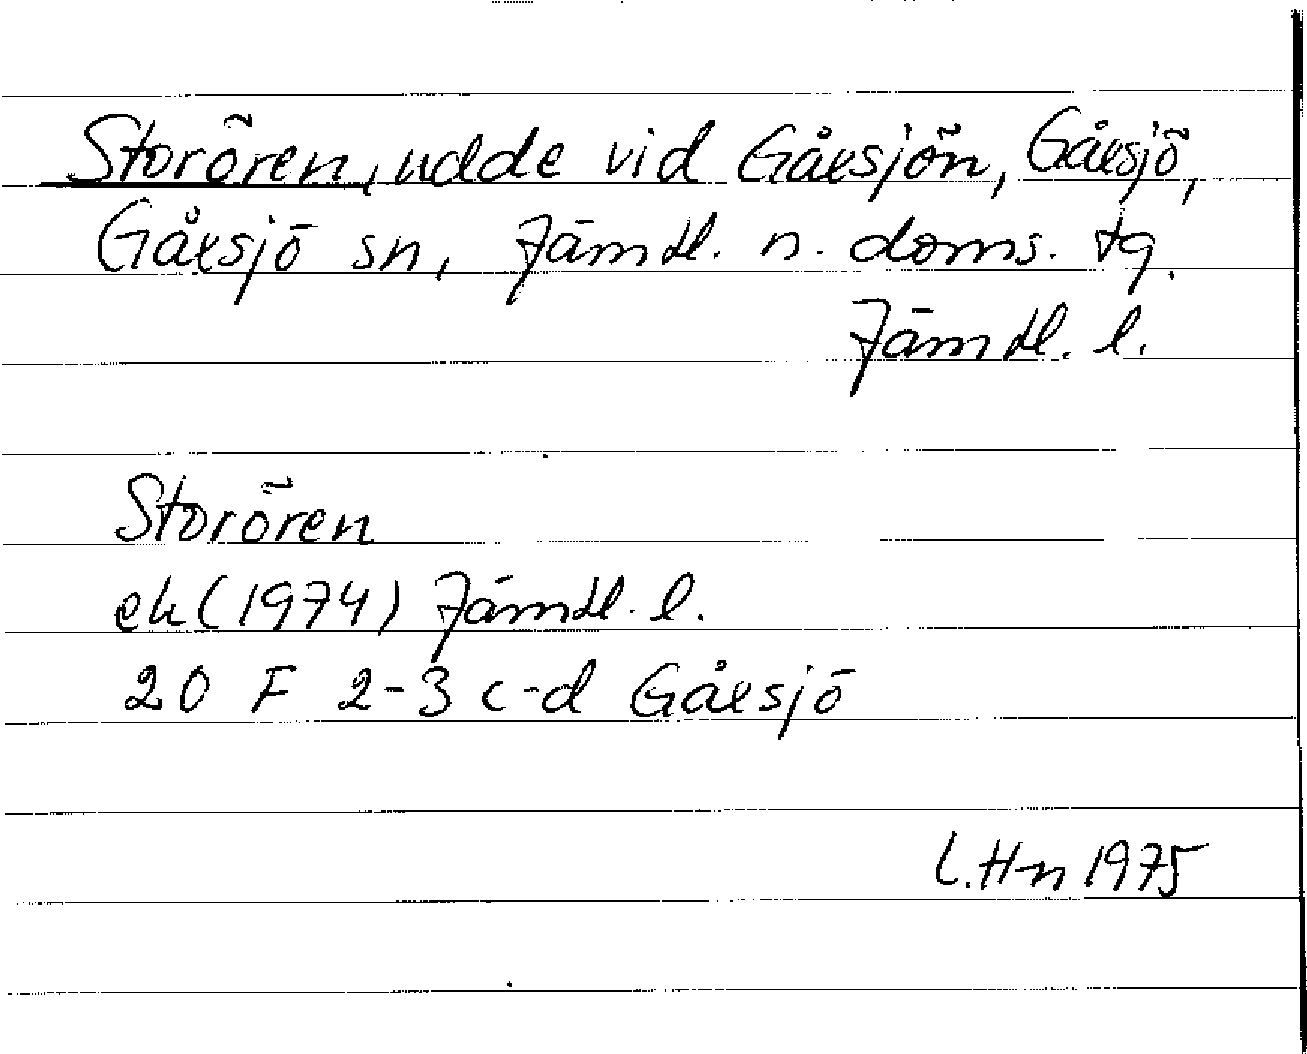 Storören, udde vid Gåxsjön, Gåxsjö,
Gåxsjö sn, Jämtl. n. doms. tg.
Jämtl. l.
Storören
ek (1974) Jämtl. l.
20 F 2-3 c-d Gåxsjö
L. Hn 1975